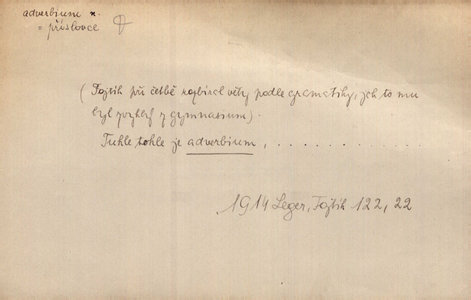 adverbium n.
= příslovce
(Fojtík při četbě rozbíral věty podle gramatiky, jak to mu
byl zvyklý z gymnasium).
Tuhle tohle je adverbium, . . . . . . . . . .
1914 Leger, Fojtík 122, 22